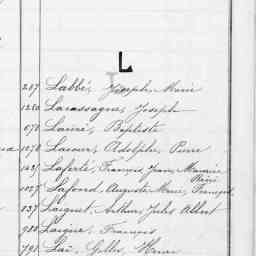 L
207 Labbé, Joseph, Marie
1250 Lacassagne, Joseph
670 Lacire, Baptiste
1070 Lacour, Adolphe, Pierre
1431 Laferté, François, Jean, Maurice
René
1027 Lafond, Auguste, Marie, François
837 Laignet, Arthur, Jules, Albert
920 Laigne, François
791 Henri